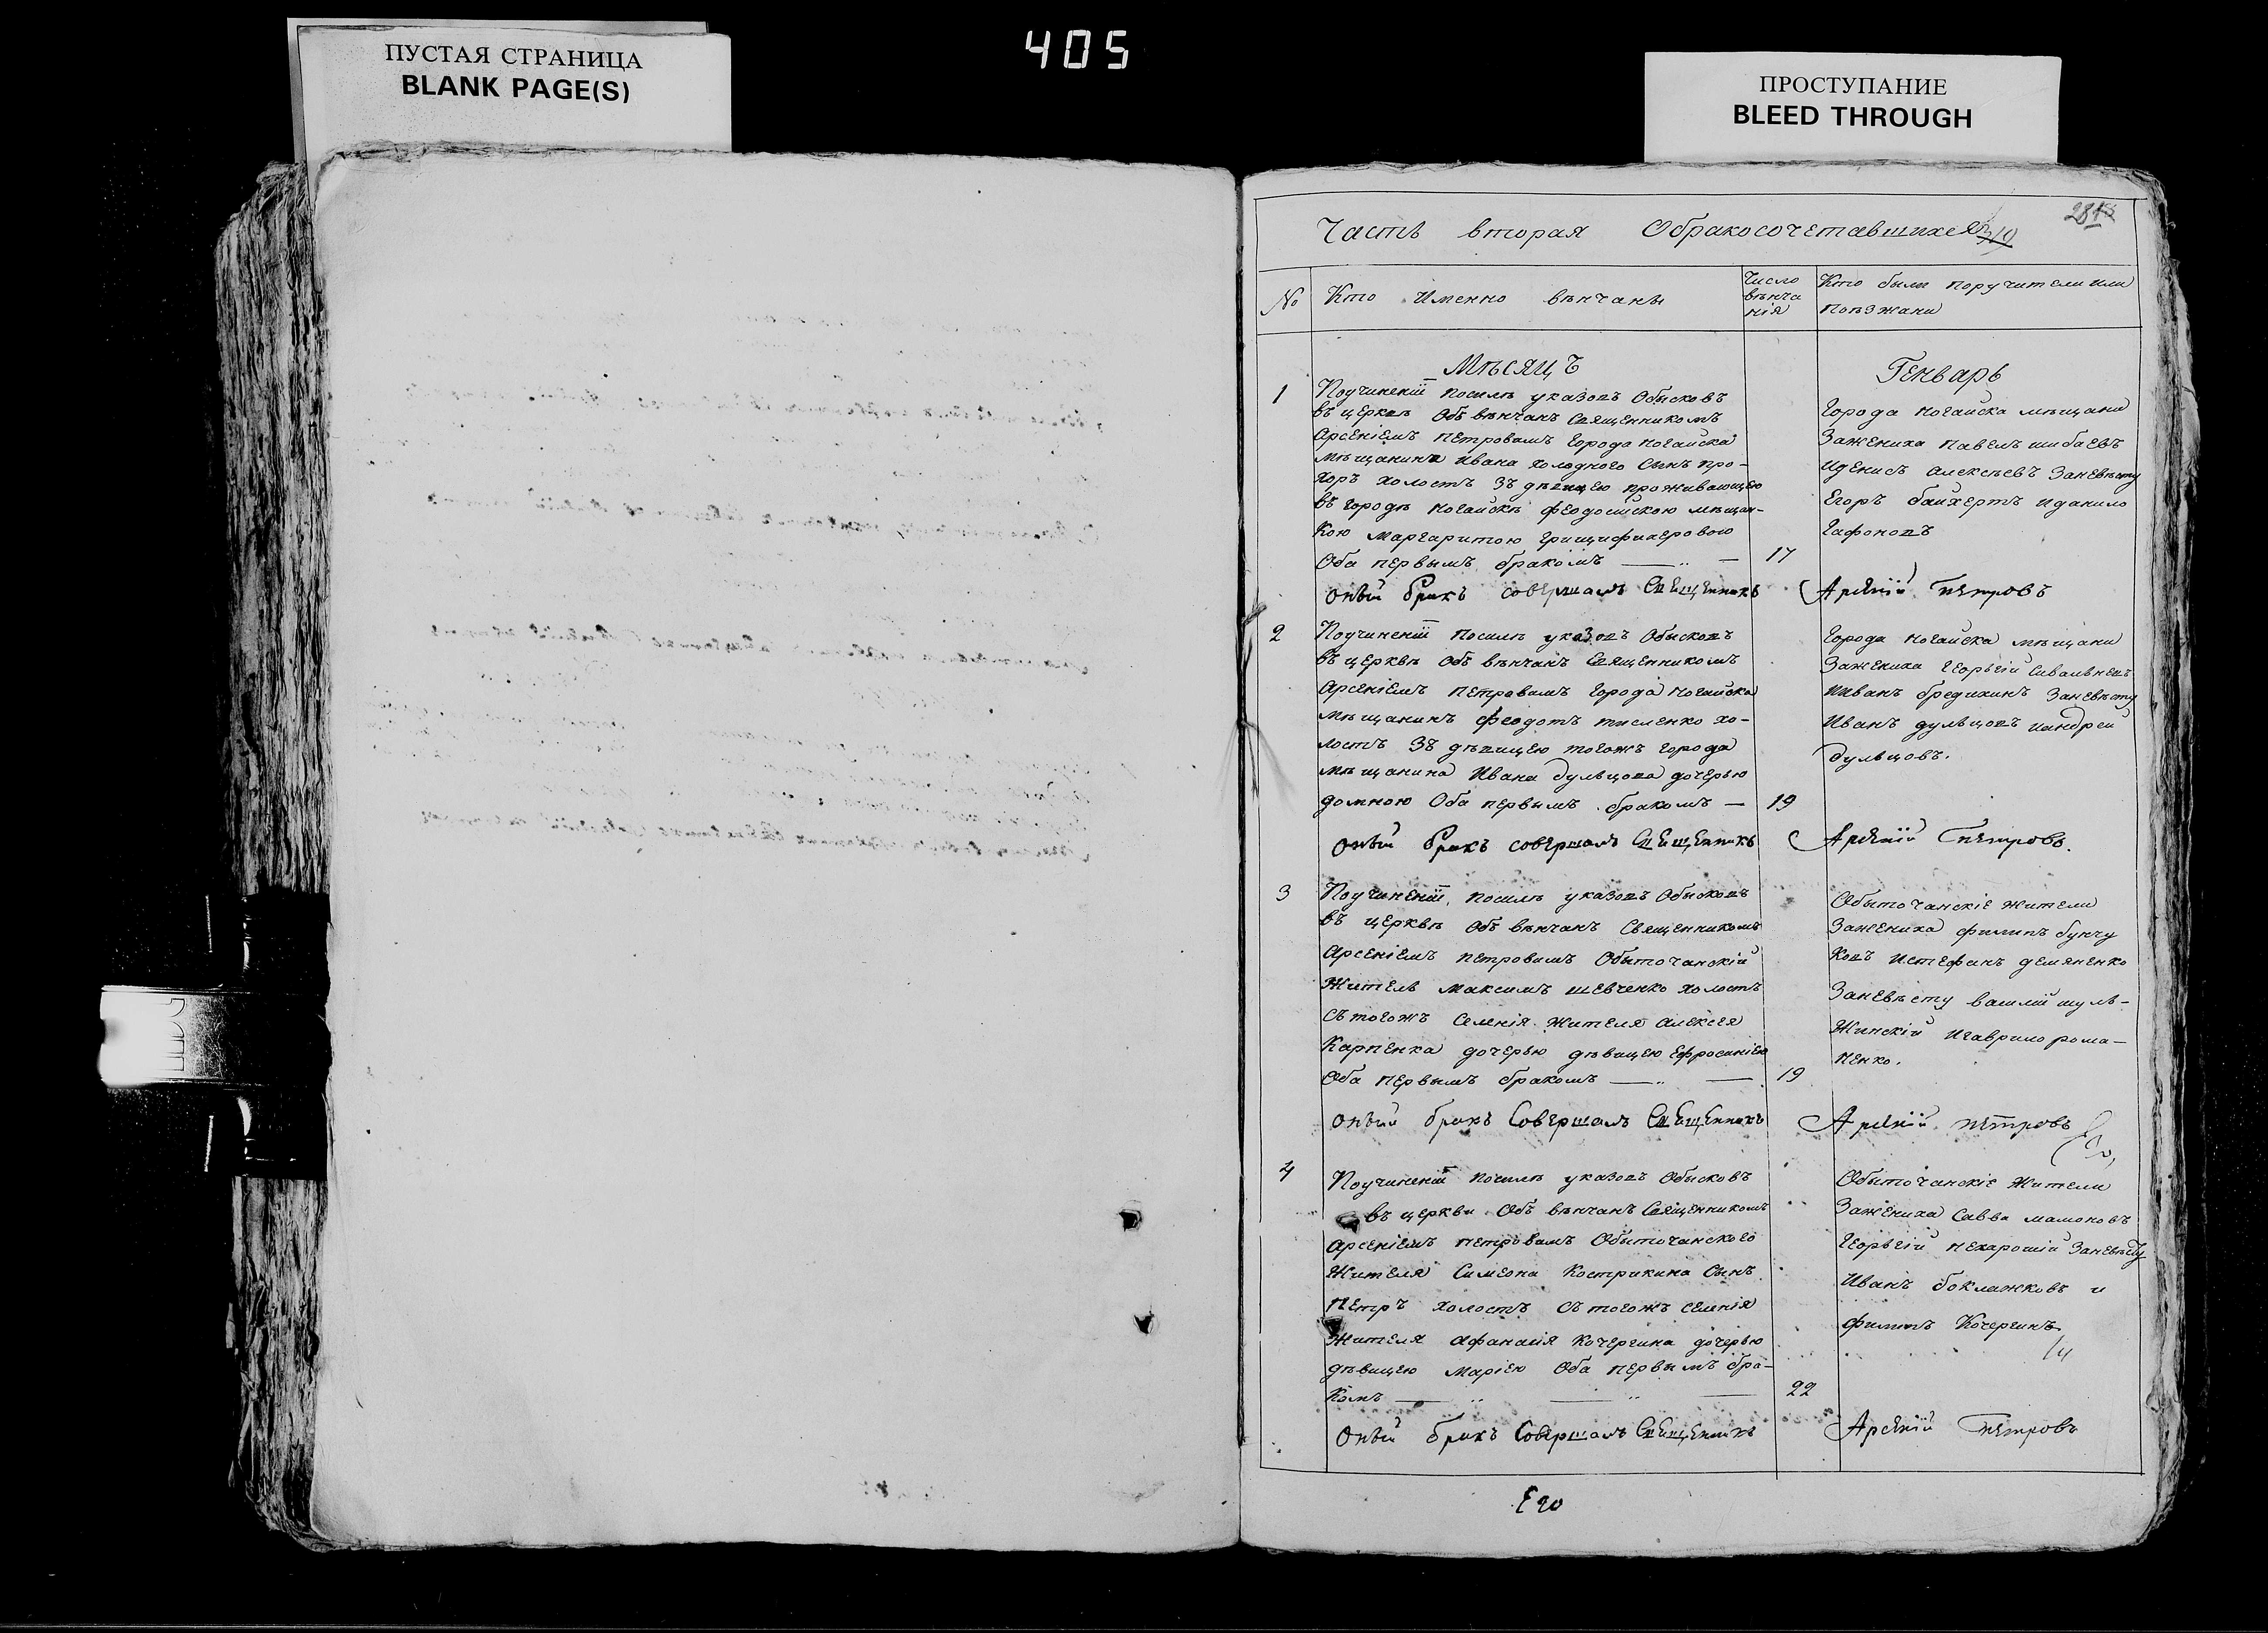 ПУСТАЯ СТРАНИЦА
BLANK PAGE(S)
405
ПРОСТУПАНИЕ
BLEED THROUGH
Часть вторая Обракосочетавшихся
№
Кто Именно вѣнчаны
Число
вѣнча
нія
Кто были поручители или
поѣзжани
Мѣсяцъ
Генварь
1
Поучиненіи посилѣ указовъ Обысковъ
въ церквѣ Объ вѣнчанъ Священникомъ
Арсеніемъ Петровымъ Города Ногайска
мѣщанина Ивана Холодного Сынъ про-
хоръ холостъ Зъ дѣвицею проживающею
въ городѣ Ногайскѣ феодосійскою мѣщан-
кою Маргаритою
Оба первымъ бракомъ
17
Города Ногайска мѣщани
Зажениха Павелъ шибаевъ
Иденисъ алексѣевъ Заневѣсту
Егоръ Идалило
Гафоновъ
Оный бракъ совершалъ Священникъ Арсеній Петровъ
2
Поучиненіи посилѣ указовъ Обысковъ
въ церквѣ Объ вѣнчанъ Священникомъ
Арсеніемъ Петровымъ Города Ногайска
мѣщанинъ феодотъ тисленко хо-
лостъ Зъ дѣвицею тогожъ города
мѣщанина Ивана дульцова дочерью
домною Оба первымъ бракомъ
19
Города Ногайска мѣщани
Зажениха Георгій
Иванъ бредихинъ Заневѣсту
Иванъ дульцовъ иандрей
дульцовъ.
Оный бракъ совершалъ Священникъ Арсеній Петровъ.
3
Поучиненіи посилѣ указовъ Обысковъ
въ церквѣ Объ вѣнчанъ Священникомъ
Арсеніемъ Петровымъ Обыточанскій
Житель Максимъ шевченко холостъ
съ тогожъ Селенія жителя Алексея
Карпенка дочерью дѣвицею Ефросиніею
Оба первымъ бракомъ
19
Обыточанскіе жители
Зажениха филипъ бунчу
ковъ Истефанъ демяненко
Заневѣсту василій шуль-
жинскій Игаврило рома-
ненко.
Оный бракъ Совершалъ Священникъ Арсеній Петровъ
4
Поучиненіи посилѣ указовъ Обысковъ
въ церкви Объ вѣнчанъ Священникомъ
Арсеніемъ Петровымъ Обыточанского
Жителя Симеона Кострикина Сынъ
Петръ холостъ съ тогожъ селенія
Жителя Афанасія Кочергина дочерью
дѣвицею Маріею Оба первымъ бра-
комъ
22
Обыточанскіе Жители
Зажениха Савва мамоновъ
Георгій нехарошій Заневѣсту
Иванъ боклажковъ и
филипъ Кочергинъ
Оный бракъ Совершалъ Священникъ Арсеній Петровъ